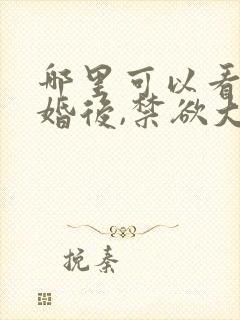 哪里可以看
婚後,禁欲大
挽秦